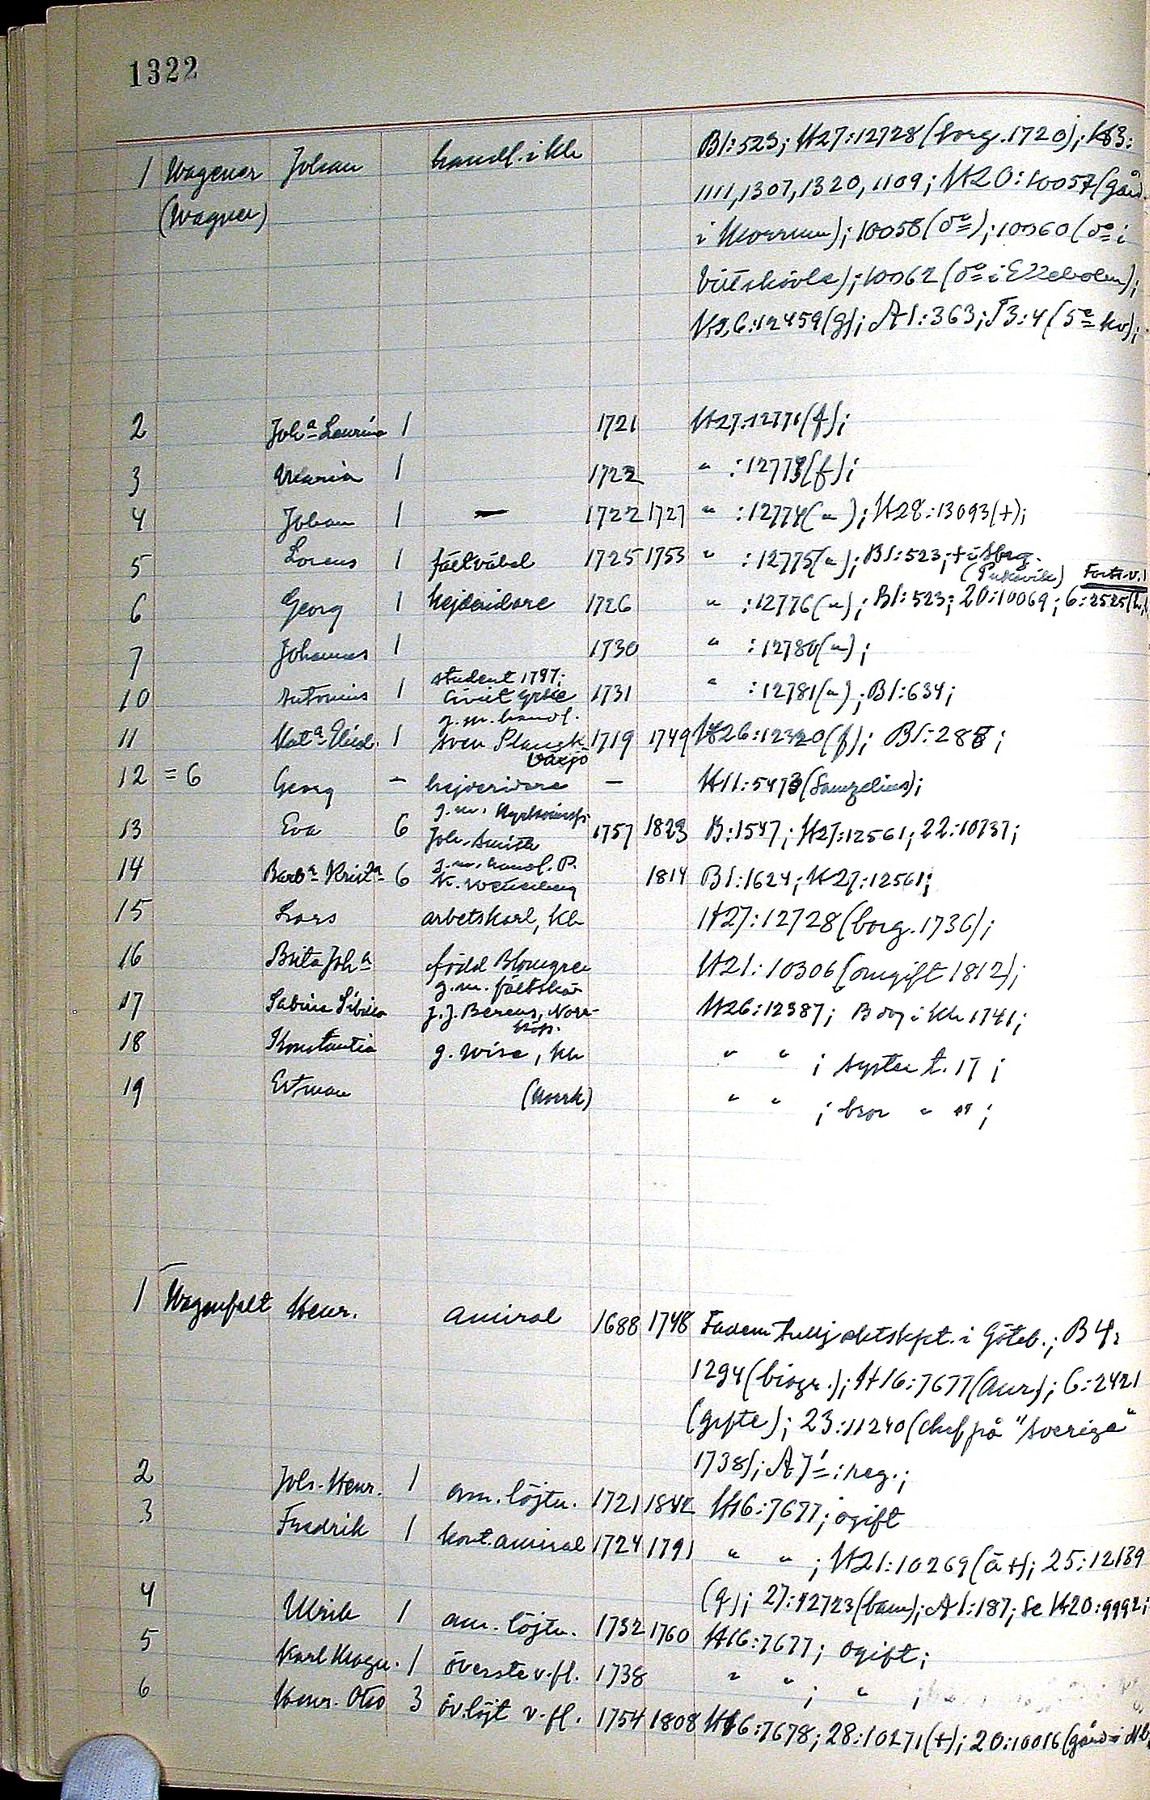 1322
1 Wagener Johan handl. i Kh B1:523; H27:12728 (borg. 1720); K83:
(Wagner) 1111, 1307, 1320, 1109; H20:10057 (gård
i Morrum); 10058 (do); 10060 (do i
); 10062 (do i Ellebolen);
H26:12459 (g); A1:363; J3:4 (5e kv);
2 Joha Lovisa 1 1721 H27:12771 (f);
3 Maria 1 1722 " :12773 (f);
4 Johan 1 — 1722 1727 " :12774 ("); H28:13093 (+);
5 Lorens 1 fältväbel 1725 1753 " :12775 ("); B1:523; + i
(Pukavik) Forts. v. 1
6 Georg 1 hejderidare 1726 " :12776 ("); B1:523; 20:10069; 6:2525
7 Johannes 1 1730 " :12780 (");
student 1747;
10 Antonius 1 1731 " :12781 ("); B1:634;
g. m. handl.
11 Kata Elisd. 1 Sven Plangk 1719 1749 H26:12320 (f); B1:288;
Växjö
12 = 6 Georg - hejderidare — H11:5473 (Samzelius);
13 Eva 6 g. m.
Joh. Smith 1757 1823 B:1547; H27:12561; 22:10737;
14 Barba Krista 6 g. m. handl. P.
N. 1814 B1:1624; H27:12561;
15 Lars arbetskarl, Kh H27:12728 (borg. 1736);
16 Brita Joha född Blomgren H21:10306 (omgift 1812);
17 Sabina g. m. fältskär
J. J. Berens, Norr-
köp. H26:12387; Bdog i Kh 1741;
18 Konstantia g. Wise, Kh " " ; syster t. 17;
19 Ertman (Norrk) " " ; bror " " ;
1 Wagenfelt Henr. amiral 1688 1748 Fadern i Göteb.; B4:
1294 (biogr.); H16:7677 (Anr); 6:2421
(gifte); 23:11240 (chef på "Sverige"
1738); A7: reg.;
2 Joh. Henr. 1 am. löjtn. 1721 1842 H16:7677; ogift
3 Fredrik 1 kont. amiral 1724 1791 " " ; H21:10269 (ä +); 25:12189
(g); 27:12723 (barn); A1:187; Se H20:9992;
4 Ulrik 1 am. löjtn. 1732 1760 H16:7677; ogift;
5 Karl Magn. 1 överste v. fl. 1738 " " ; " ;
6 Henr. Otto 3 öv. löjt v. fl. 1754 1808 H16:7678; 28:10271 (+); 20:10016 (gård i